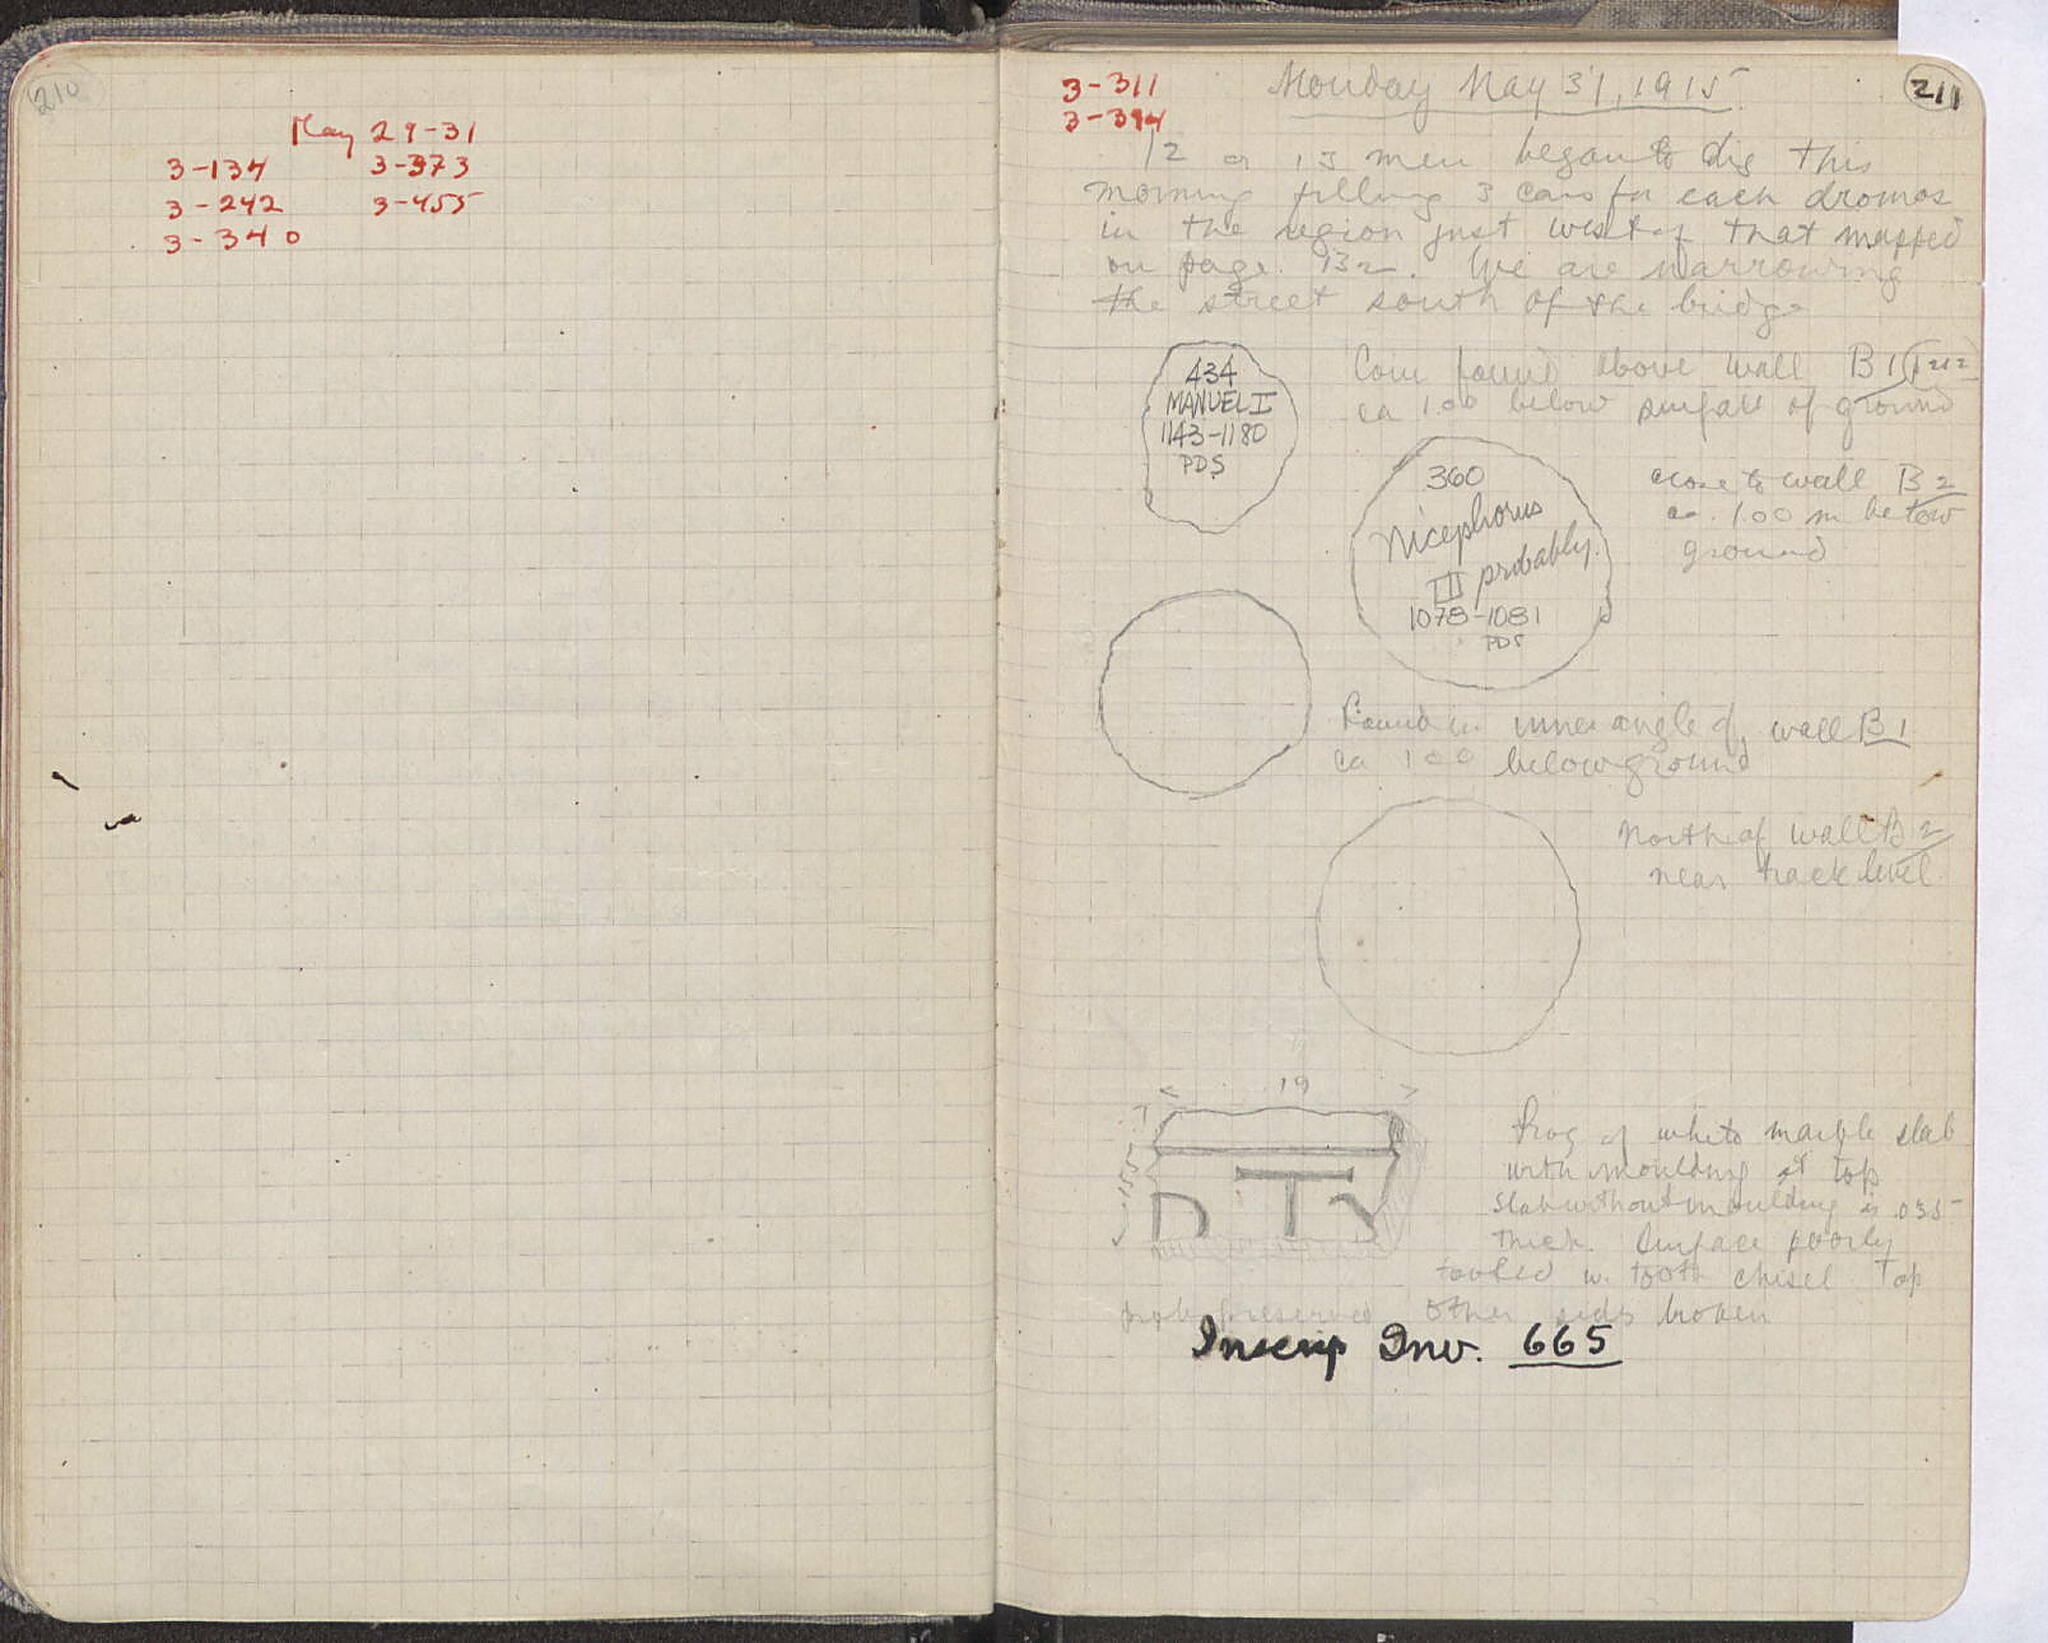 210
May 29-31
3-134 3-373
3-242 3-455
3-340
3-311
3-394
Monday May 31, 1915.
211
12 or 13 men began to dig this
morning filling 3 cars for each dromos
in the region just west of that mapped
on page 132. We are narrowing
the street south of the bridge
434
MANUEL I
1143-1180
PDS
Coin found above wall B1
ca 1.00 below surface of ground
360
Nicephorus
III probably.
1078-1081
PDS
close to wall B2
ca. 1.00 m below
ground
Found in inner angle of wall B1
ca 1.00 below ground
North of wall B2
near track level
19
.155
Frag of white marble slab
with moulding at top
slab without moulding is .035
thick. Surface poorly
tooled w. tooth chisel Top
prob. preserved other sides broken
Inscrip Inv. 665